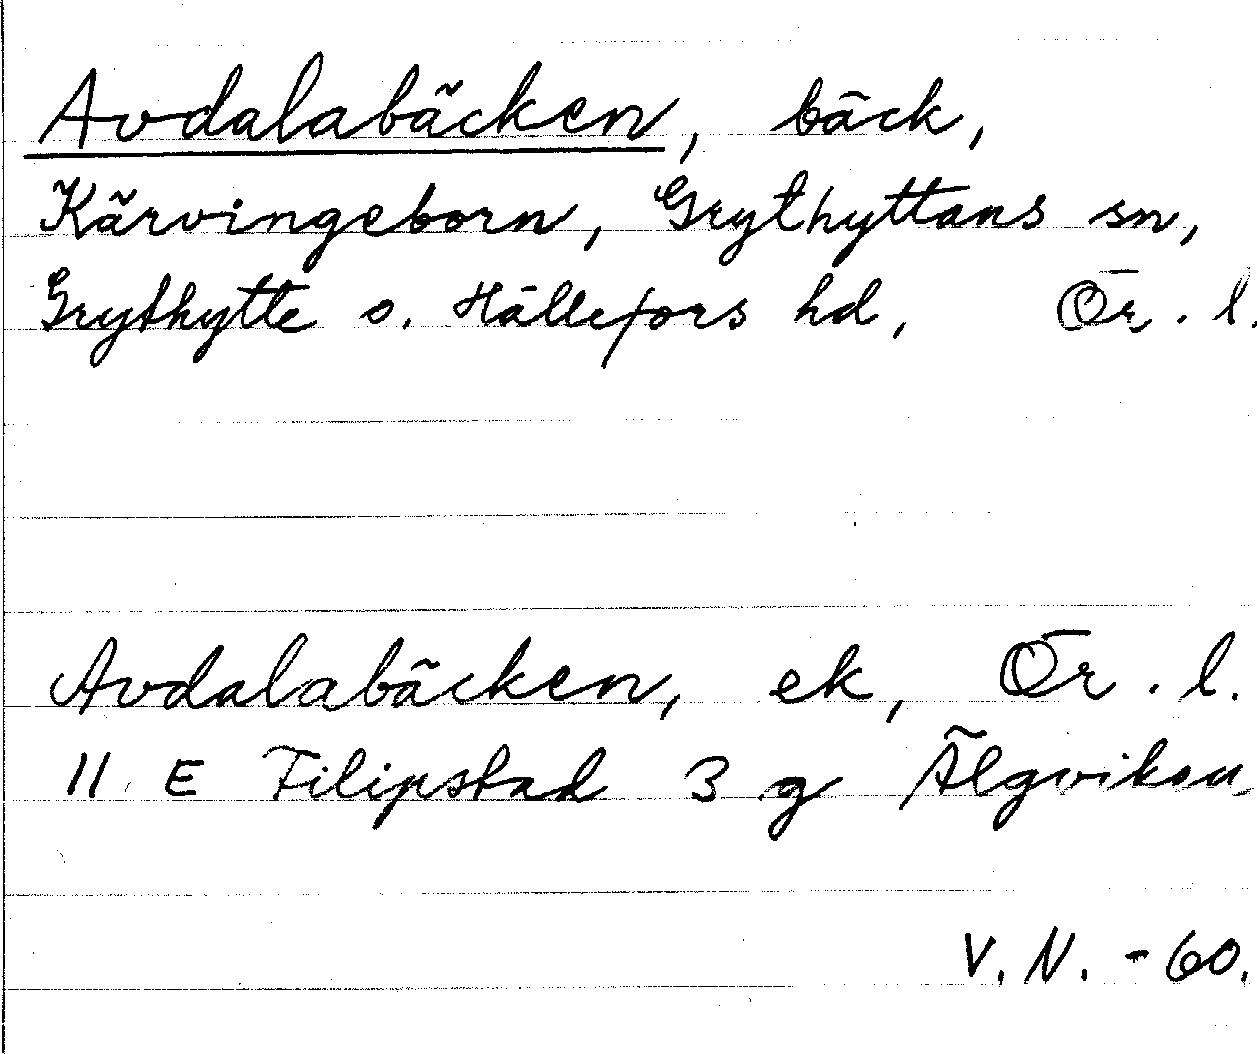 Avdalabäcken, bäck,
Kärvingeborn, Grythyttans sn,
Grythytte o. Hällefors hd, Ör. l.
Avdalabäcken, ek, Ör. l.
11 E Filipstad 3 g Älgviken
V. N. - 60.